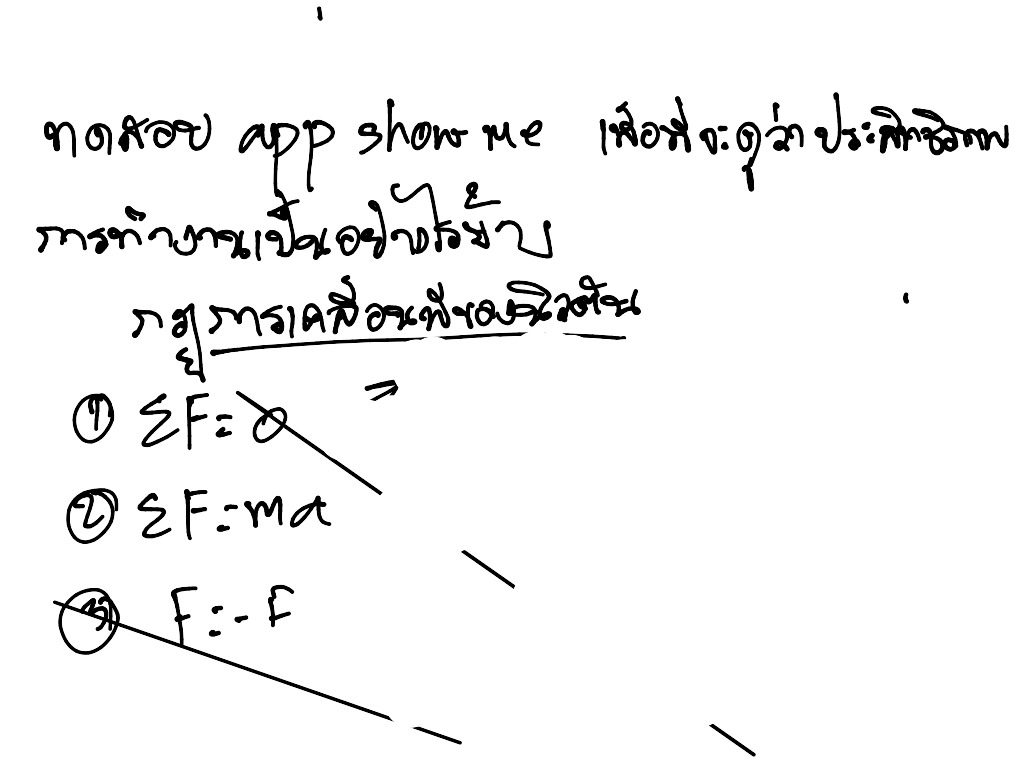 ทดสอบ app show me เพื่อที่จะดูว่าประสิทธิภาพ
การทำงานเป็นอย่างไรบ้าง
กฎการเคลื่อนที่ของนิวตัน
① ΣF = 0
② ΣF = ma
③ F = -F